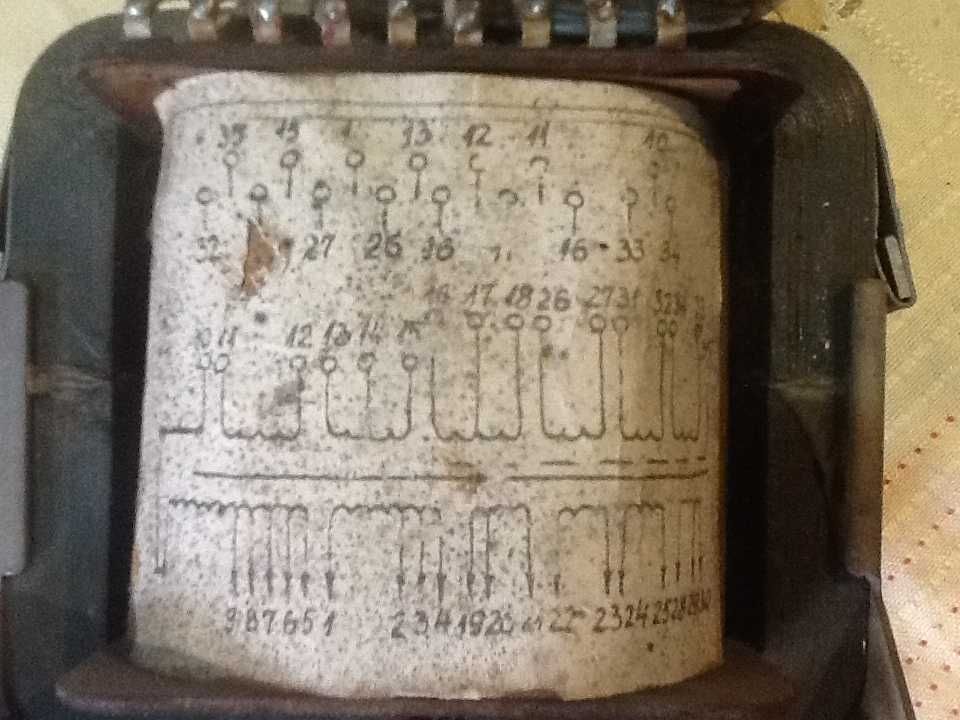 35 15 1 13 12 11 10
32 27 26 36 16 33
17 18 26 27 31 32
11 12 13 14 15
9 8 7 6 5 1 2 3 4 19 20 21 22 23 24 25 28